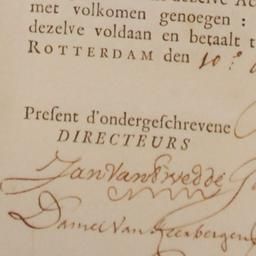 met volkomen genoegen :
dezelve voldaan en betaalt t
ROTTERDAM den 10:
Preſent d'ondergeſchrevene
DIRECTEURS
Jan van
Daniel van